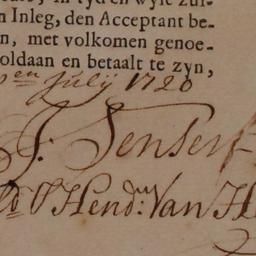 in tyd en wyle
n Inleg, den Acceptant be-
n, met volkomen genoe-
oldaan en betaalt te zyn,
en July 1720
J: Senserf
Hend: Van H